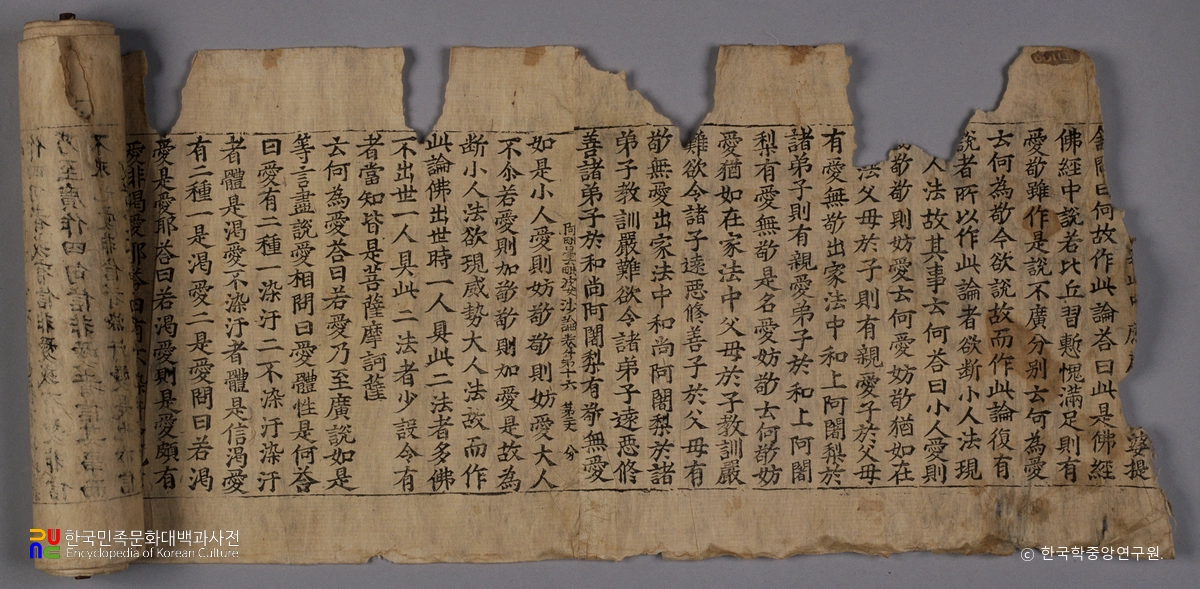 婆提
問曰何故作此論荅曰此是佛經
佛經中說若比丘習慙愧滿足則有
愛敬雖作是說不廣分别云何為愛
云何為敬今欲說故而作此論復有
說者所以作此論者欲断小人法現
人法故其事云何荅曰小人愛則
敬敬則妨愛云何愛妨敬猶如在
法父母於子則有親愛子於父母
有愛無敬出家法中和上阿闍梨於
諸弟子則有親愛弟子於和上阿闍
梨有愛無敬是名愛妨敬云何敬妨
愛猶如在家法中父母於子教訓嚴
難欲令諸子遠惡修善子於父母有
敬無愛出家法中和尚阿闍梨於諸
弟子教訓嚴難欲令諸弟子遠惡修
善諸弟子於和尚阿闍梨有敬無愛
阿毗曇毗婆沙論卷第十六
如是小人愛則妨敬敬則妨愛大人
不尒若愛則加敬敬則加愛是故為
断小人法欲現威勢大人法故而作
此論佛出世時一人具此二法者多佛
不出世一人具此二法者少設今有
者當知皆是菩薩摩訶薩
云何為愛荅曰若愛乃至廣說如是
等言盡說愛相問曰愛體性是何荅
曰愛有二種一染汙二不染汙染汙
者體是渴愛不染汙者體是信渴愛
有二種一是渴愛二是愛問曰若渴
愛是愛耶荅曰若渴愛則是愛頗有
愛非渴愛耶荅曰有
한국민족문화대백과사전
Encyclopedia of Korean Culture
© 한국학중앙연구원.